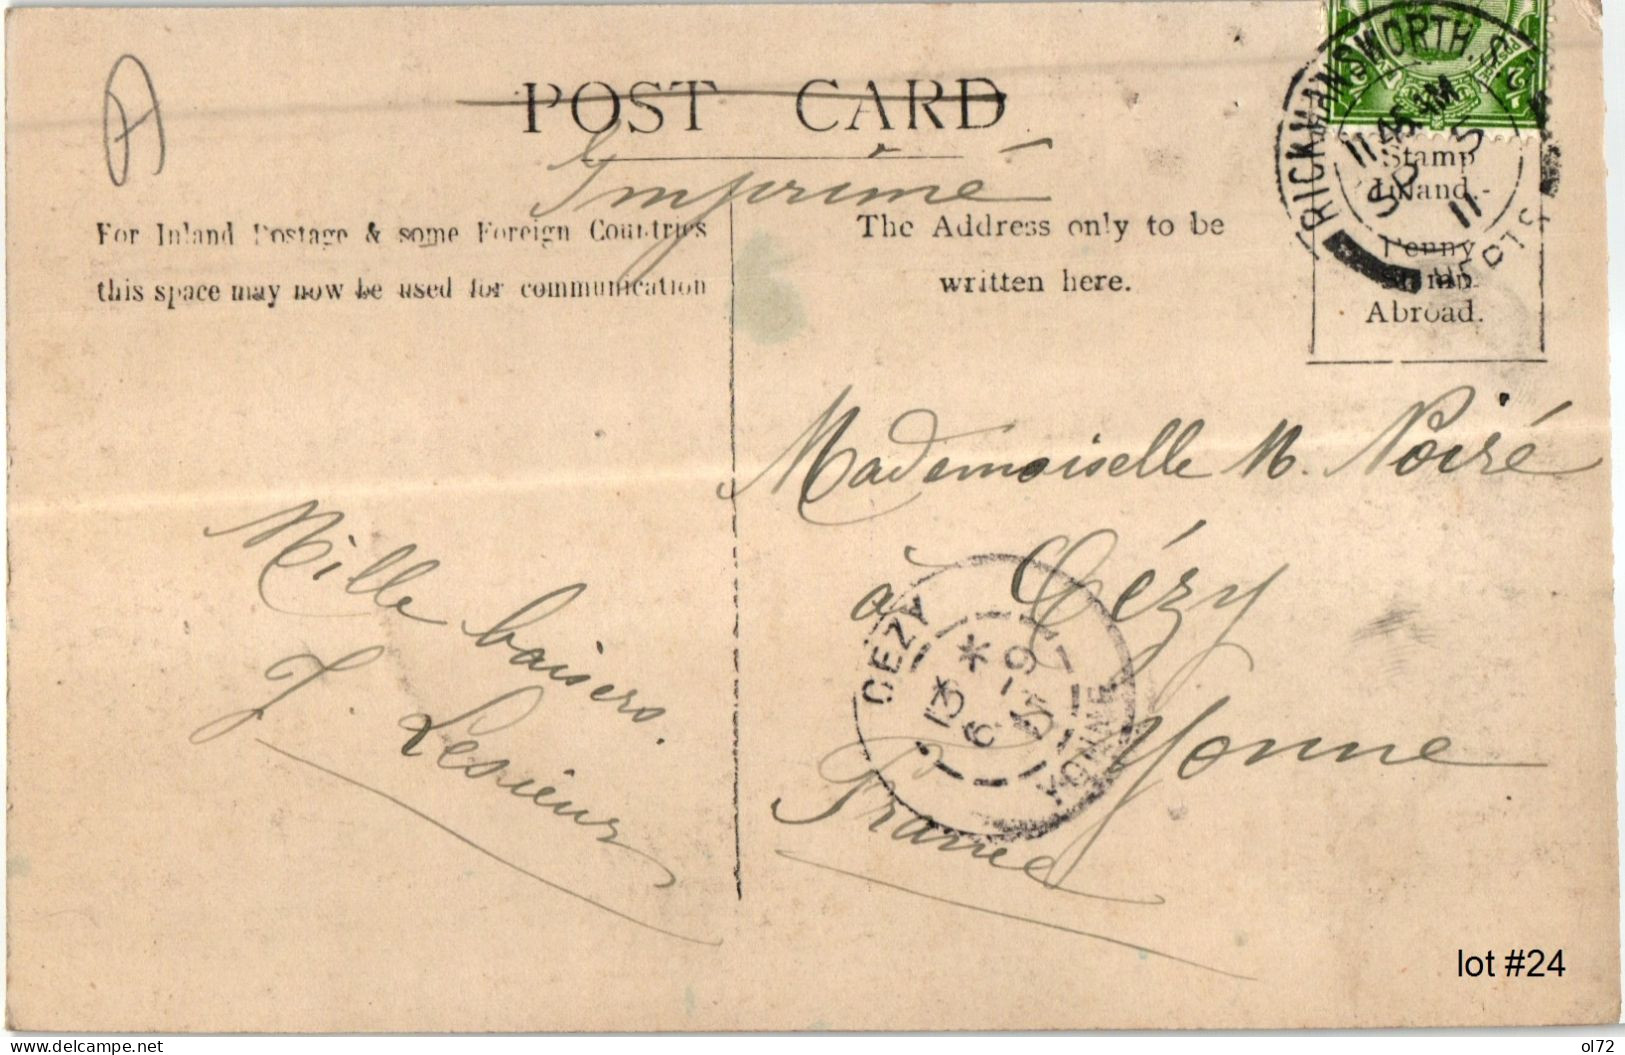 POST CARD
Imprimé
For Inland Postage & some Foreign Countries
this space may now be used for communication
The Address only to be
written here.
RICKMANSWORTH. S.O.
11.45 AM
SP 5
11
Stamp
Inland.
Penny
Stamp
Abroad.
Mademoiselle M. Noiré
à Cézy
Yonne
France
CEZY
13 *
6 - 9
YONNE
Mille baisers.
J. Lesieur
lot #24
delcampe.net
ol72